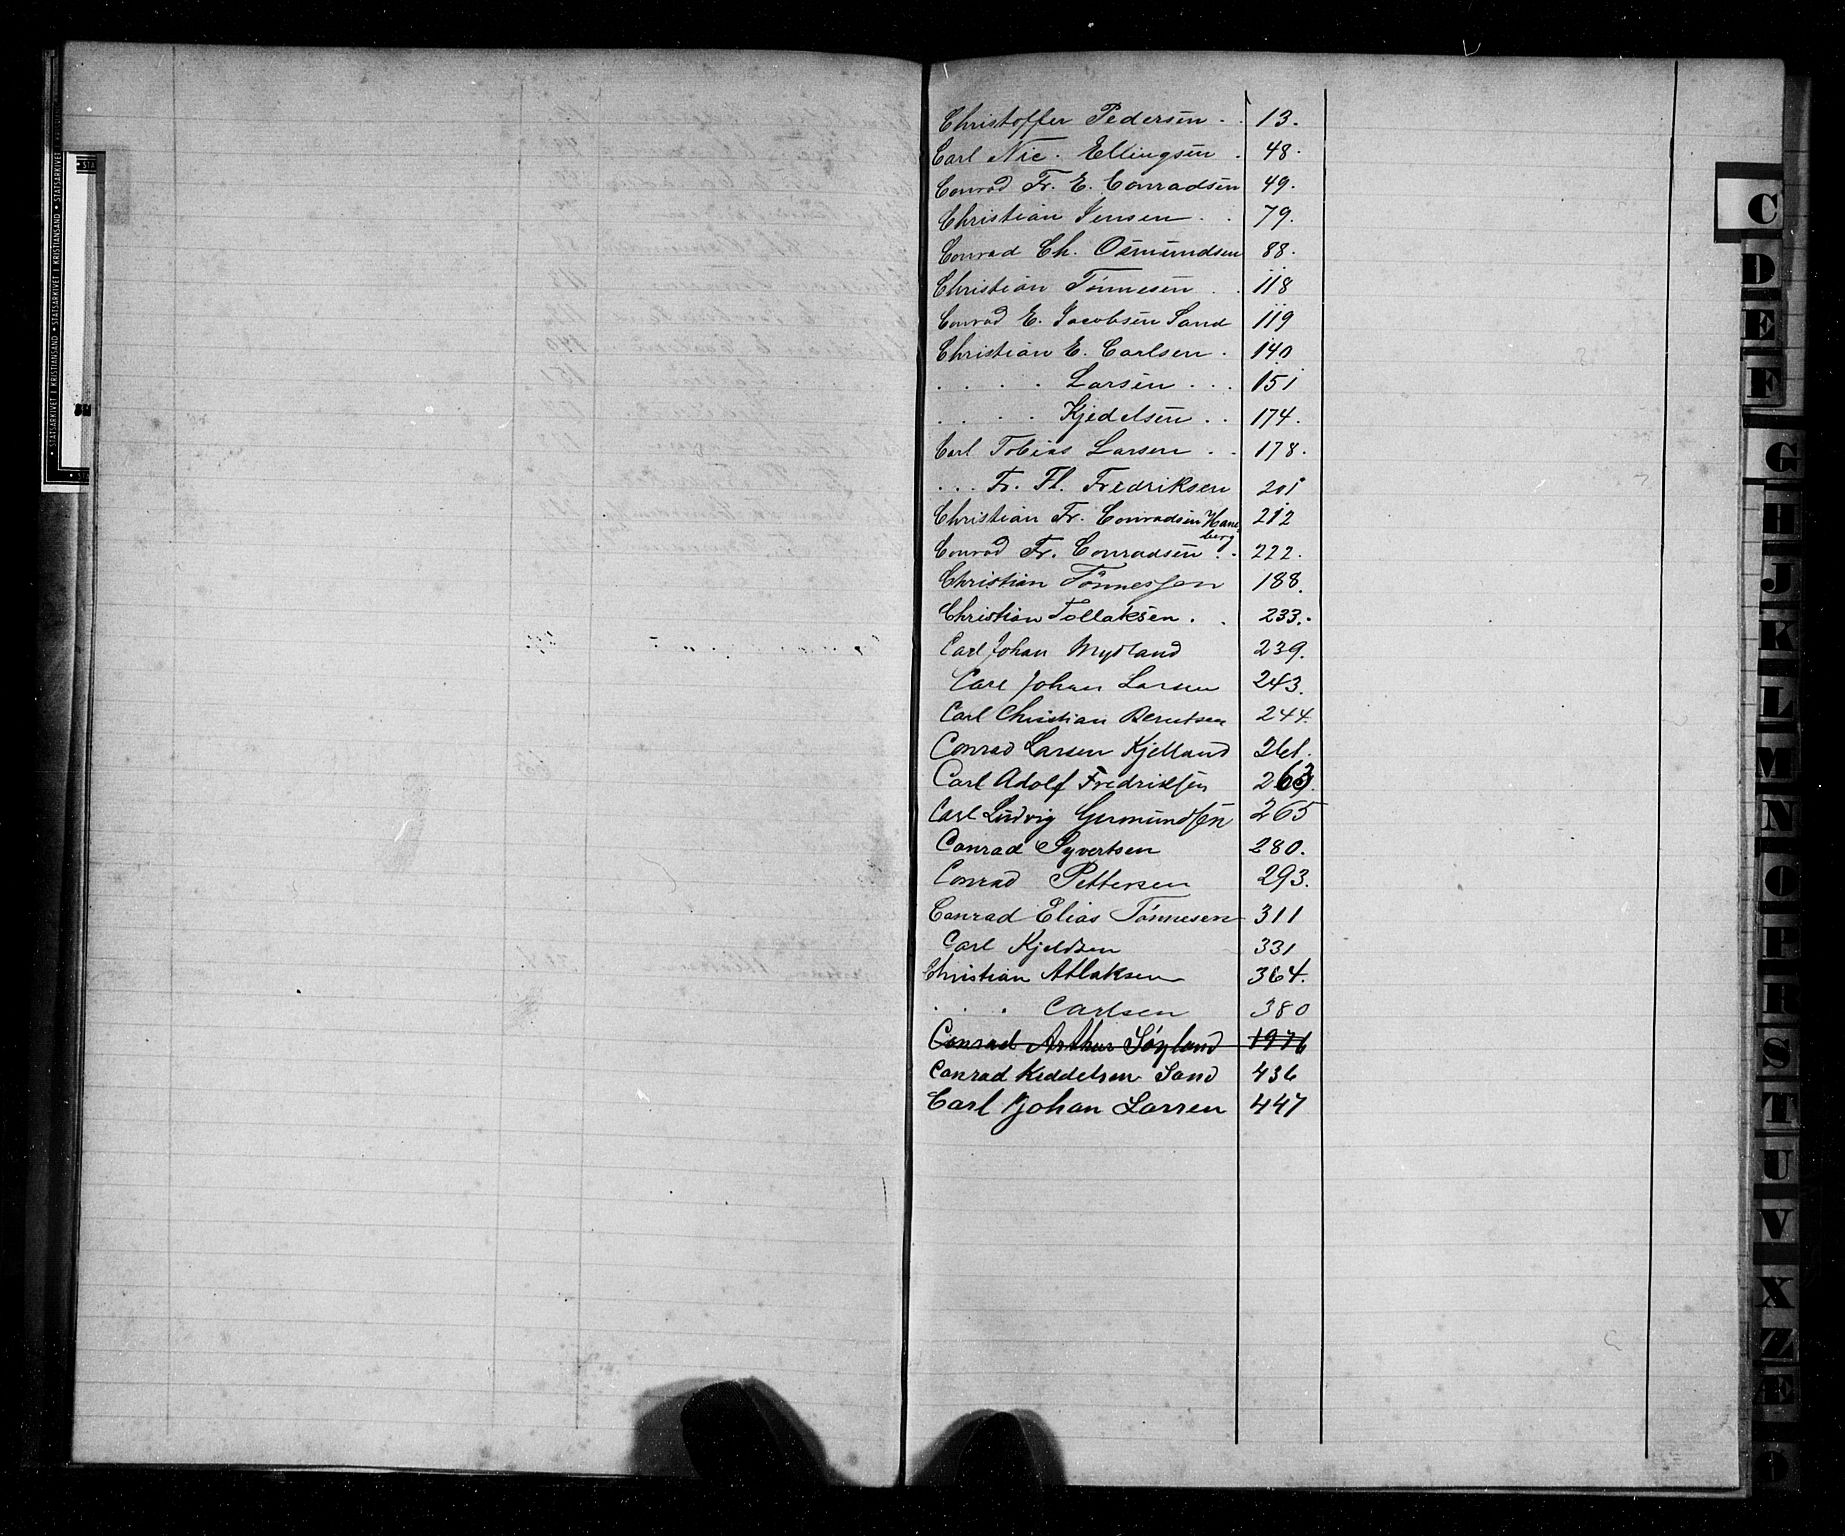 Christoffer Pedersen . . 13.
Carl Nic. Ellingsen . 48.
Conrad Fr. E. Conradsen 49.
Christian Jensen . . 79.
Conrad Ch. Osmundsen 88.
Christian Tønnesen . . 118
Conrad E. Jacobsen Sand 119
Christian E. Carlsen . 140
. . . . Larsen . . . 151
. . . . Kjedelsen . . 174.
Carl Tobias Larsen . . 178.
. . . Fr. Fl. Fredriksen 201
Christian Fr. Conradsen Hane- 212
berg
Conrad Fr. Conradsen . . 222.
Christian Tønnessen 188.
Christian Tollaksen . . 233.
Carl Johan Mydland 239.
Carl Johan Larsen 243.
Carl Christian Berntsen 244.
Conrad Larsen Kjelland 261.
Carl Adolf Fredriksen 263.
Carl Ludvig Germundsen 265
Conrad Syvertsen 280.
Conrad Pettersen 293.
Conrad Elias Tønnesen 311
Carl Kjeldsen 331
Christian Atlaksen 364.
. . . Carlsen 380
Conrad Arthur Søyland 1976
Conrad Keddelsen Sand 436
Carl Johan Larsen 447
C
D
E
F
G
H
J
K
L
M
N
O
P
R
S
T
U
V
X
Z
Æ
Ø
STATSARKIVET I KRISTIANSAND • STATSARKIVET I KRISTIANSAND • STATSARKIVET